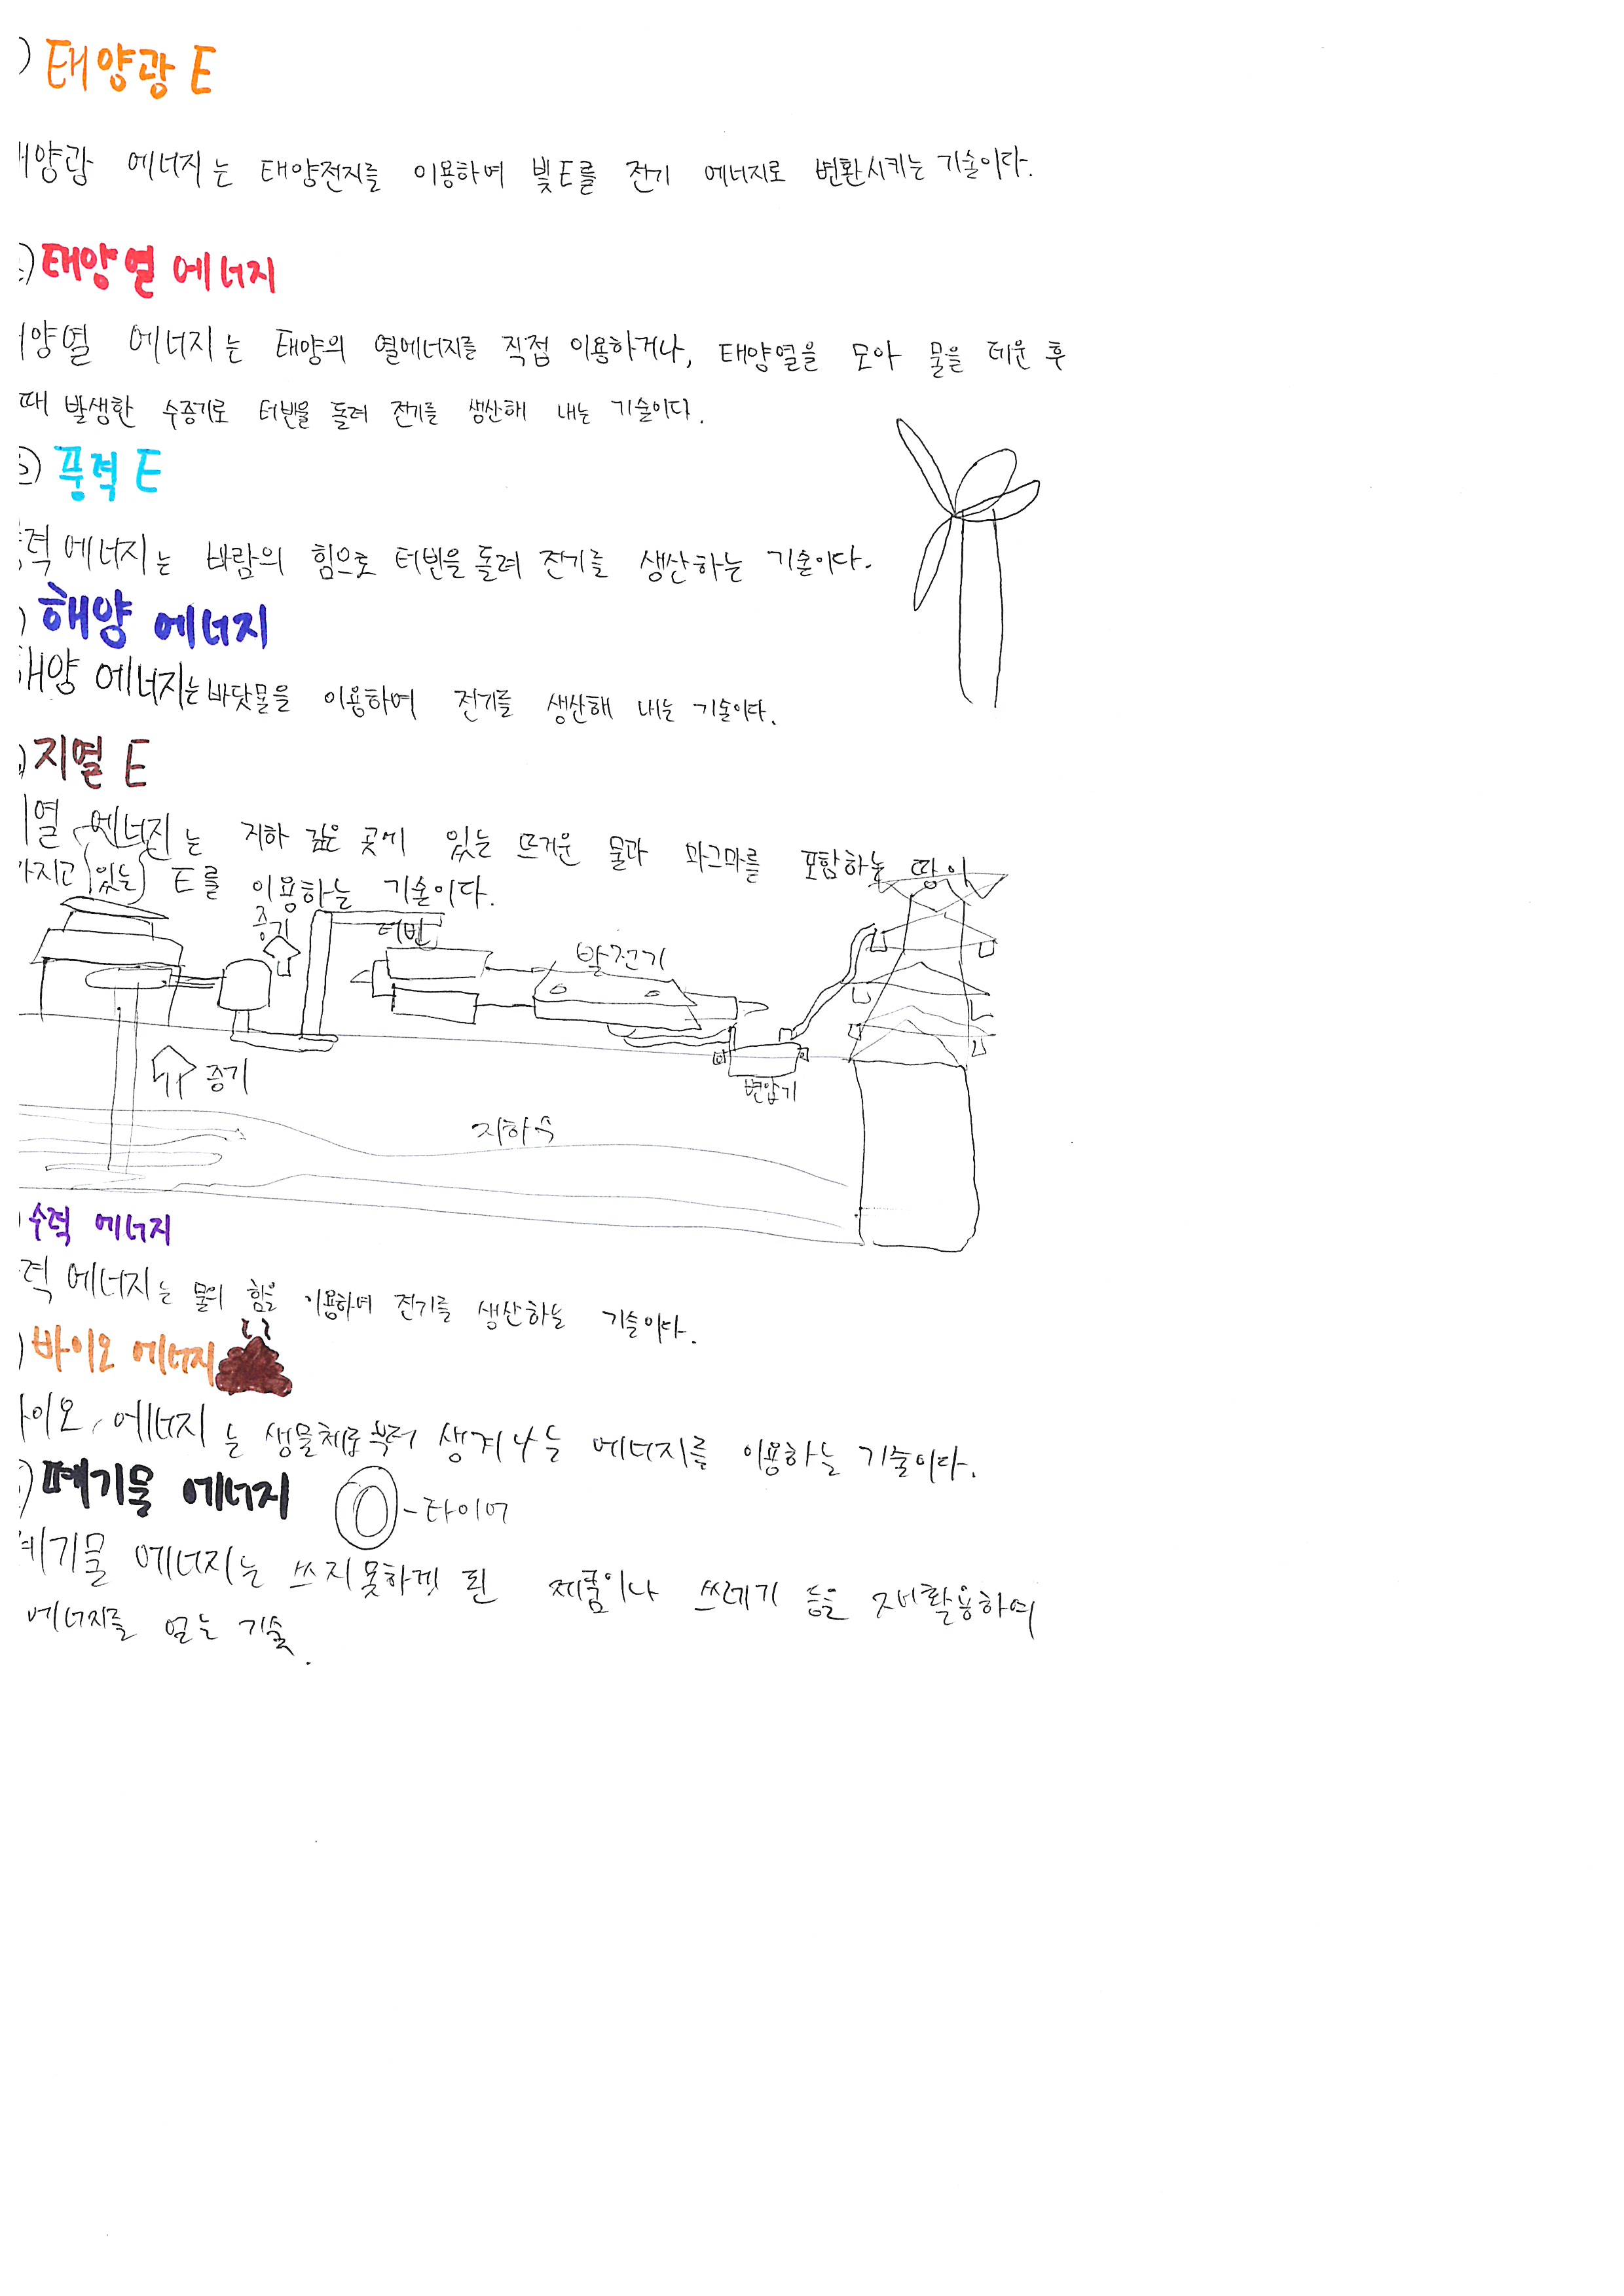 ) 태양광 E
양광 에너지는 태양전지를 이용하여 빛E를 전기 에너지로 변환시키는 기술이다.
) 태양열 에너지
양열 에너지는 태양의 열에너지를 직접 이용하거나, 태양열을 모아 물을 데운 후
때 발생한 수증기로 터빈을 돌려 전기를 생산해 내는 기술이다.
) 풍력 E
력 에너지는 바람의 힘으로 터빈을 돌려 전기를 생산하는 기술이다.
) 해양 에너지
양 에너지는 바닷물을 이용하여 전기를 생산해 내는 기술이다.
) 지열 E
열 에너지는 지하 깊은 곳에 있는 뜨거운 물과 마그마를 포함하는 땅이
가지고 있는 E를 이용하는 기술이다.
증기
터빈
발전기
증기
변압기
지하수
수력 에너지
력 에너지는 물의 힘을 이용하여 전기를 생산하는 기술이다.
) 바이오 에너지
이오 에너지는 생물체로부터 생겨나는 에너지를 이용하는 기술이다.
) 폐기물 에너지
-타이어
기물 에너지는 쓰지못하게 된 제품이나 쓰레기 등을 재활용하여
에너지를 얻는 기술.